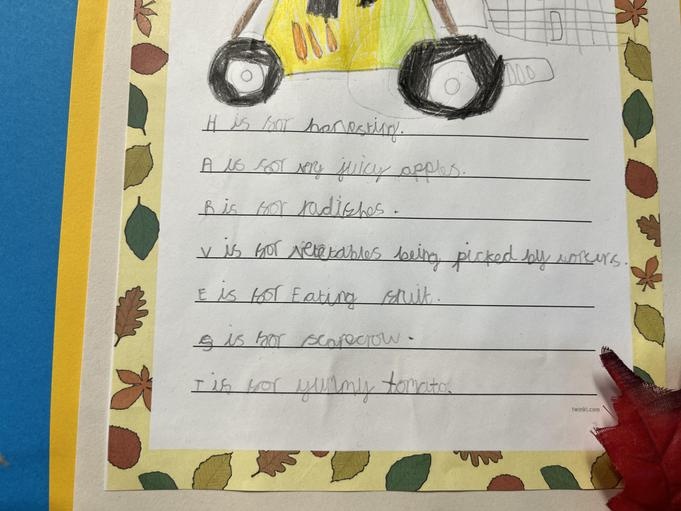 H is for harvesting.
A is for my juicy apples.
R is for radishes.
V is for vegetables being picked by workers.
E is for Eating fruit.
S is for scarecrow.
T is for yummy tomato.
twinkl.com